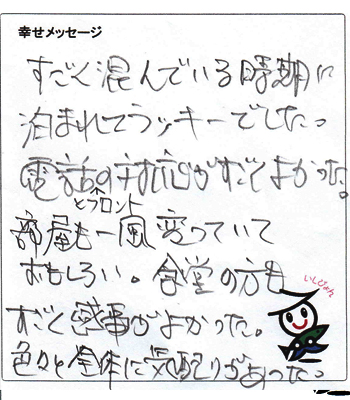 幸せメッセージ
すごく混んでいる時期に
泊まれてラッキーでしたっ
電話の対応がすごくよかった。
とフロント
部屋も一風変っていて
おもしろい。食堂の方も
いしぴょん
すごく感事がよかった。
色々と全体に気配りがあったっ